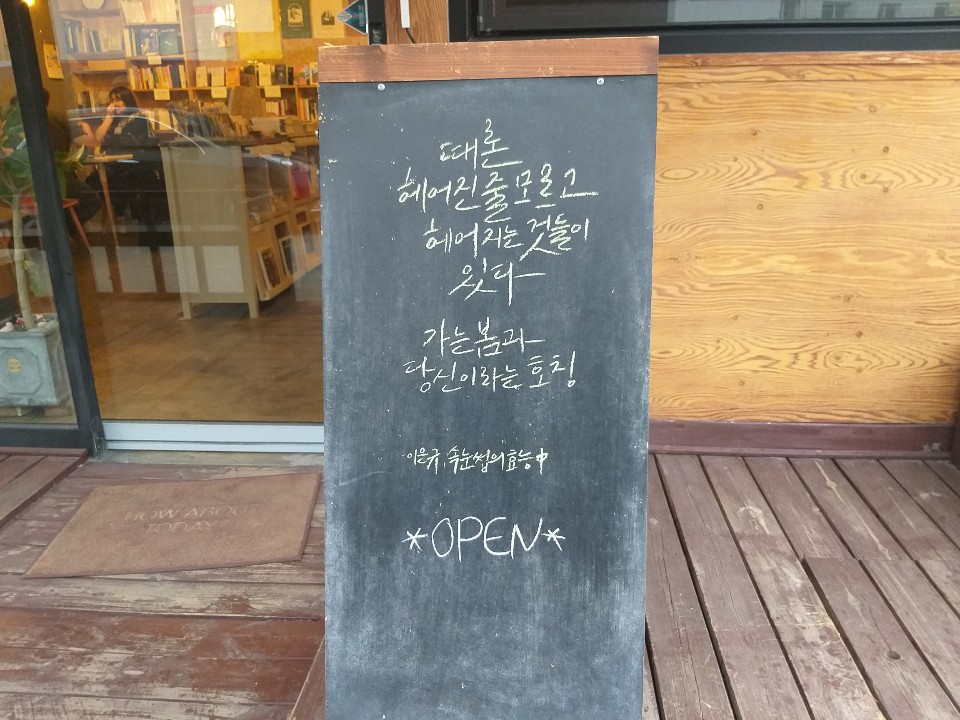 때론
헤어진줄 모르고
헤어지는 것들이
있다
가는 봄과
당신이라는 호칭
이은규, 속눈썹의 효능 中
*OPEN*
HOW ABOUT
TODAY